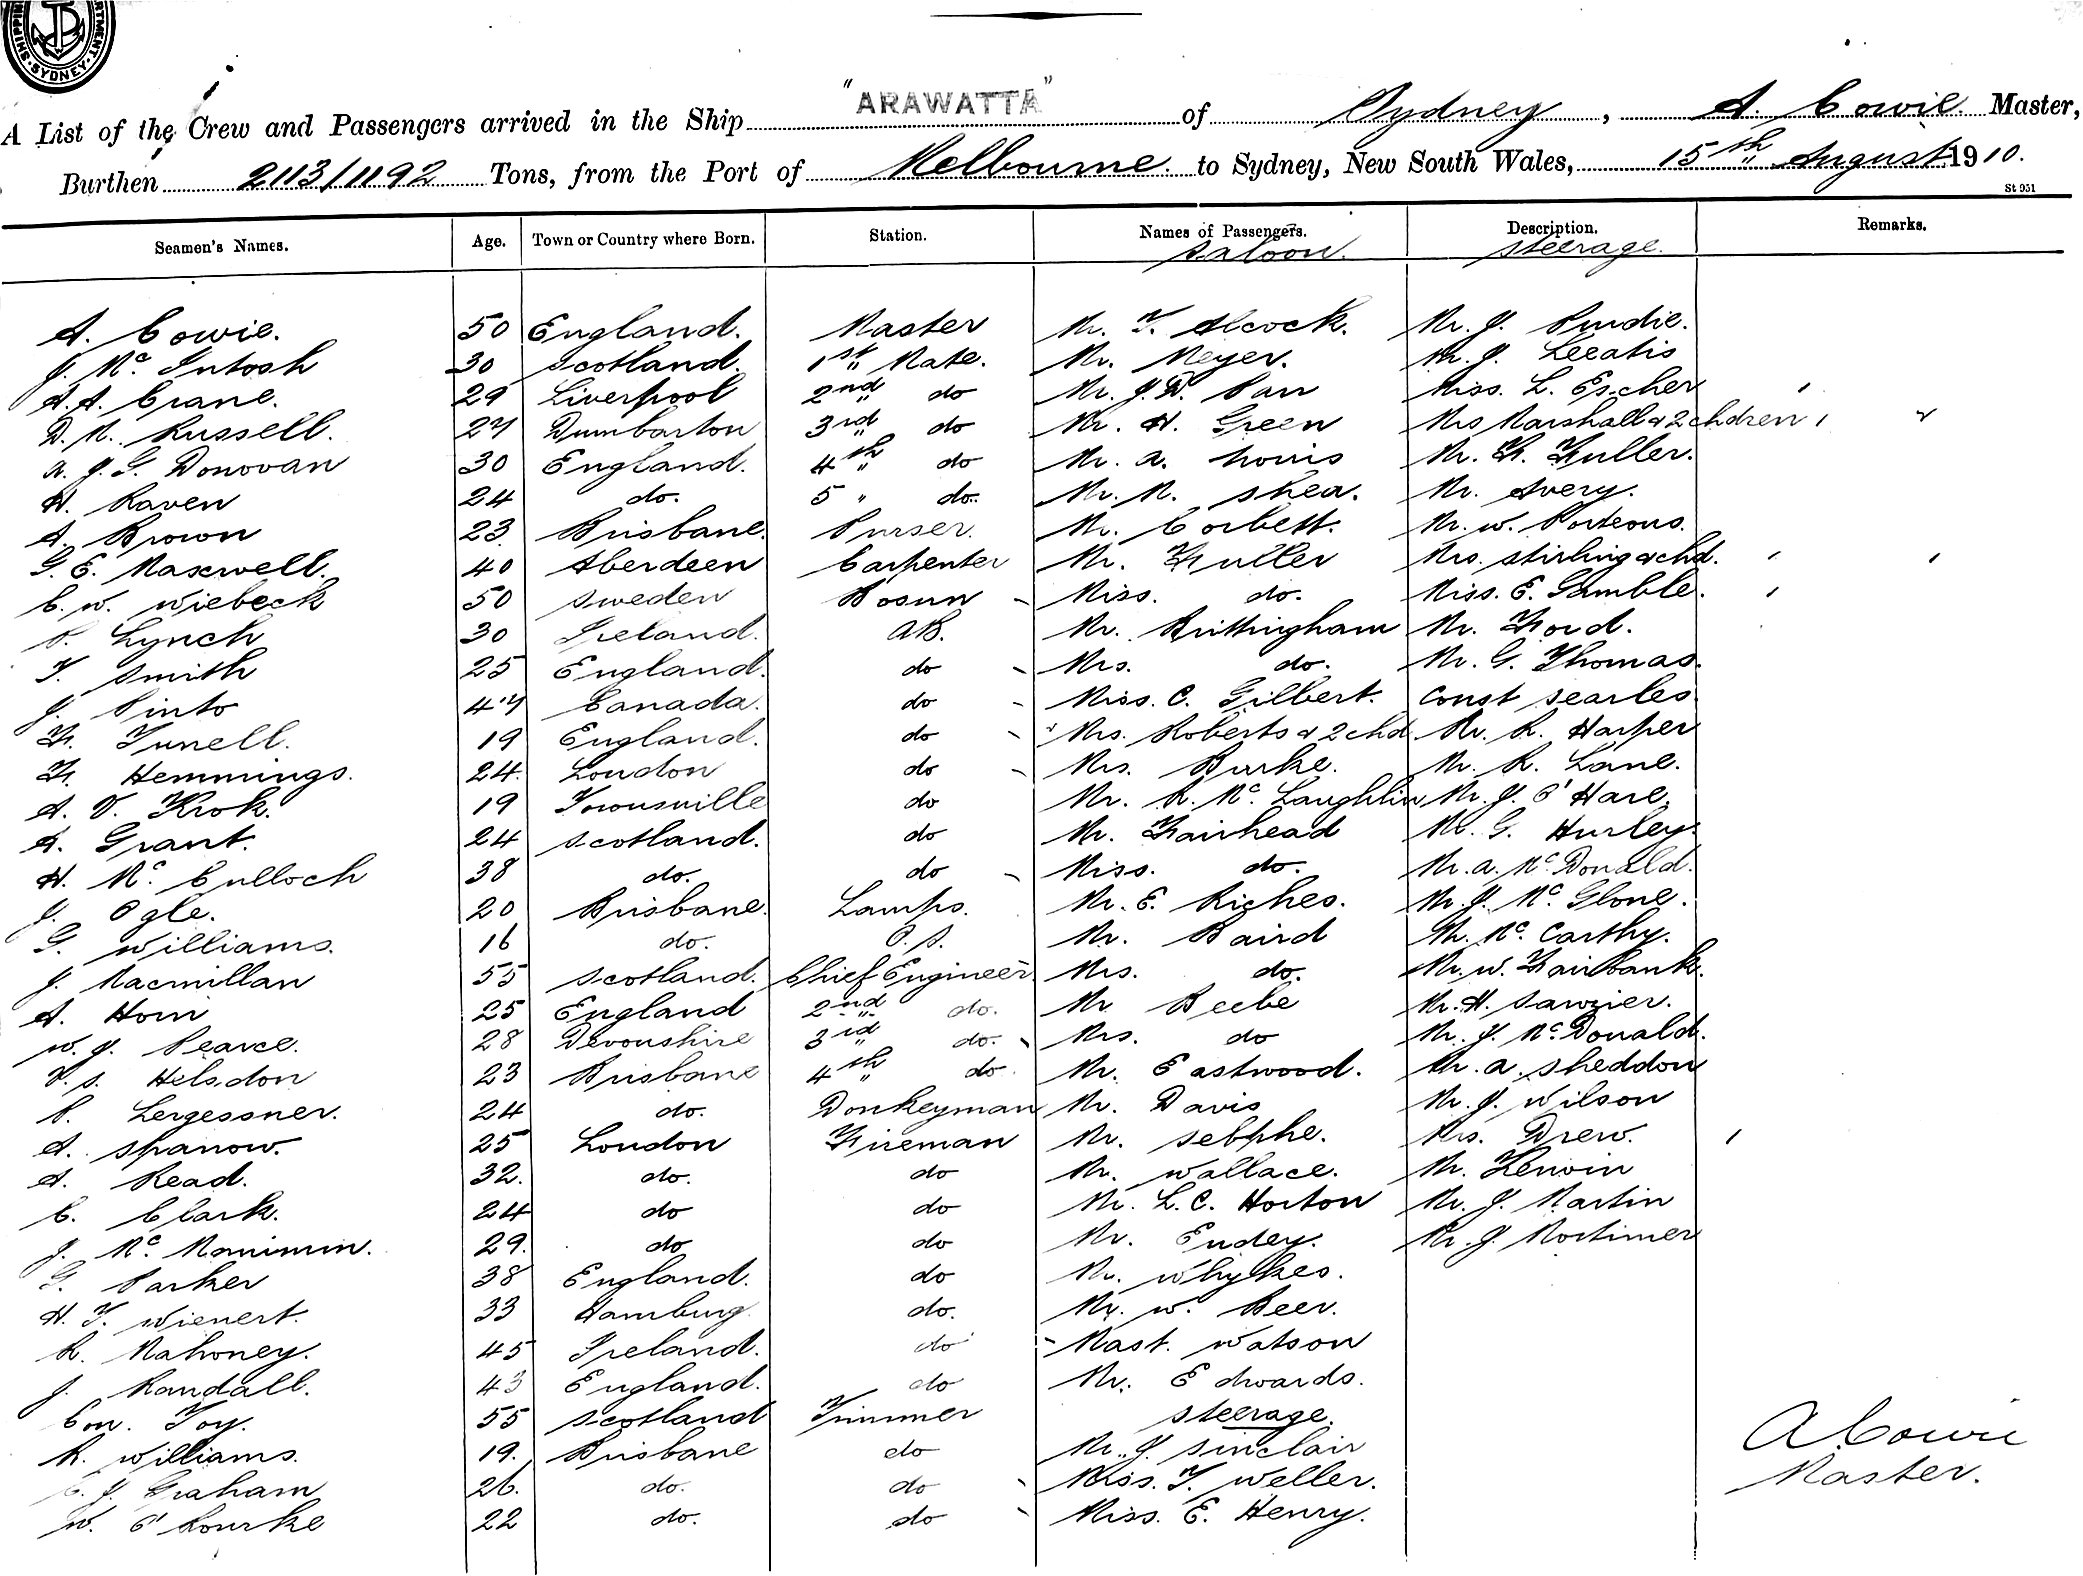 SHIPPING DEPARTMENT. SYDNEY.
A List of the Crew and Passengers arrived in the Ship "ARAWATTA" of Sydney, A. Cowie Master,
Burthen 2113/1192 Tons, from the Port of Melbourne. to Sydney, New South Wales, 15th August 1910.
St 951
Seamen's Names. Age. Town or Country where Born. Station. Names of Passengers. Description. Remarks.
Saloon. Steerage.
A. Cowie. 50 England. Master Mr. T. Alcock. Mr. J. Purdie.
J. Mc Intosh 30 Scotland. 1st Mate. Mr. Meyer. Mr. J. Leeatis
A. A. Crane. 29 Liverpool 2nd do Mr. J. W. Pan Miss. L. Escher
D. M. Russell. 27 Dumbarton 3rd do Mr. H. Green Mrs Marshall & 2 chdren
A. J. G. Donovan 30 England. 4th do Mr. A. Morris Mr. F. Fuller.
H. Raven 24 do. 5 " do. Mr. M. Shea. Mr. Avery.
A. Brown 23 Brisbane. Purser. Mr. Corbett. Mr. W. Porteous.
G. E. Maxwell. 40 Aberdeen Carpenter Mr. Fuller Mrs. Stirling & chd.
C. W. Wiebeck 50 Sweden Bosun Miss. do. Miss. E. Gamble.
P. Lynch 30 Ireland. AB. Mr. Brittingham Mr. Ford.
T. Smith 25 England. do Mrs. do. Mr. G. Thomas.
J. Pinto 47 Canada. do Miss. C. Gilbert. Const Searles
F. Tunell. 19 England. do Mrs. Roberts & 2 chd. Mr. R. Harper
F. Hemmings. 24. London do Mrs. Burke. Mr. R. Lane.
A. V. Krok. 19 Townsville do Mr. R. Mc Laughlin Mr. J. O'Hare.
A. Grant. 24 Scotland. do Mr. Fairhead Mr. G. Hurley.
H. Mc Culloch 38 do. do Miss. do. Mr. A. Mc Donald.
J. Ogle. 20 Brisbane. Lamps. Mr. E. Riches. Mr. J. Mc Glone.
G. Williams. 16 do. O. S. Mr. Baird Mr. Mc Carthy.
J. Macmillan 55 Scotland. Chief Engineer Mrs. do. Mr. W. Fairbank.
A. Horn 25 England 2nd do. Mr Beebe Mr. H. Sawzier.
W. J. Pearce. 28 Devonshire 3rd do. Mrs. do Mr. J. Mc Donald.
V. S. Helsdon 23 Brisbane 4th do. Mr. Eastwood. Mr. A. Sheddon
P. Lergessner. 24 do. Donkeyman Mr. Davis Mr. J. Wilson
A. Spanow. 25 London Fireman Mr. Sebphe. Mrs. Drew.
A. Read. 32. do. do Mr. Wallace. Mr. Lerwin
C. Clark. 24 do do Mr. L. C. Horton Mr. J. Martin
J. Mc Manimin. 29. do do Mr. Endey. Mr. J. Mortimer
G. Parker 38 England. do Mr. Whylkes.
H. T. Wienert. 33 Hamburg. do. Mr. W. Beer.
R. Mahoney. 45 Ireland. do Mast. Watson
J. Randall. 43 England. do Mr. Edwards.
Con. Toy. 55 Scotland Trimmer Steerage.
R. Williams. 19. Brisbane do Mr. J. Sinclair
C. J. Graham 26. do. do Miss. T. Weller.
W. O'Rourke 22 do. do Miss. E. Henry.
A Cowie
Master.